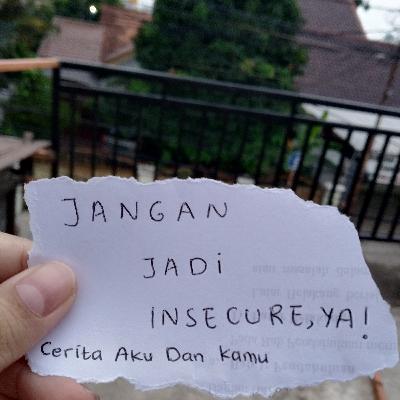 JANGAN
JADi
INSECURE, YA!
Cerita Aku Dan Kamu